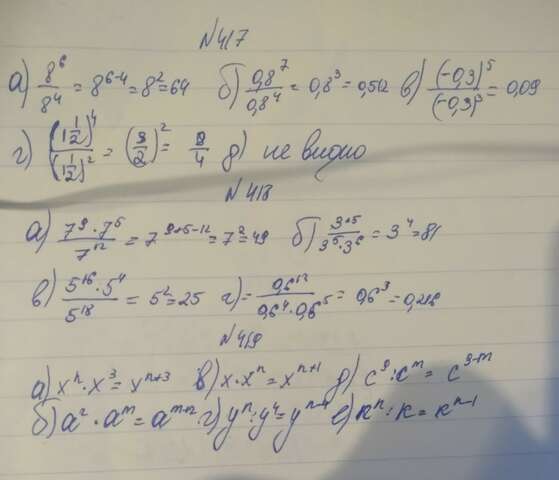 №417
а) 8⁶/8⁴ = 8⁶⁻⁴ = 8² = 64 б) 0,8⁷/0,8⁴ = 0,8³ = 0,512 в) (-0,3)⁵/(-0,3)³ = 0,09
г) (1 1/2)⁴/(1 1/2)² = (3/2)² = 9/4 д) не видно
№418
а) 7⁹·7⁵/7¹² = 7⁹⁺⁵⁻¹² = 7² = 49 б) 3¹⁵/3⁵·3⁶ = 3⁴ = 81
в) 5¹⁶·5⁴/5¹⁸ = 5² = 25 г) = 0,6¹²/0,6⁴·0,6⁵ = 0,6³ = 0,216
№419
а) xⁿ·x³ = xⁿ⁺³ в) x·xⁿ = xⁿ⁺¹ д) c⁹:cᵐ = c⁹⁻ᵐ
б) a²·aᵐ = aᵐ⁺² г) yⁿ:y⁴ = yⁿ⁻⁴ е) кⁿ:к = кⁿ⁻¹